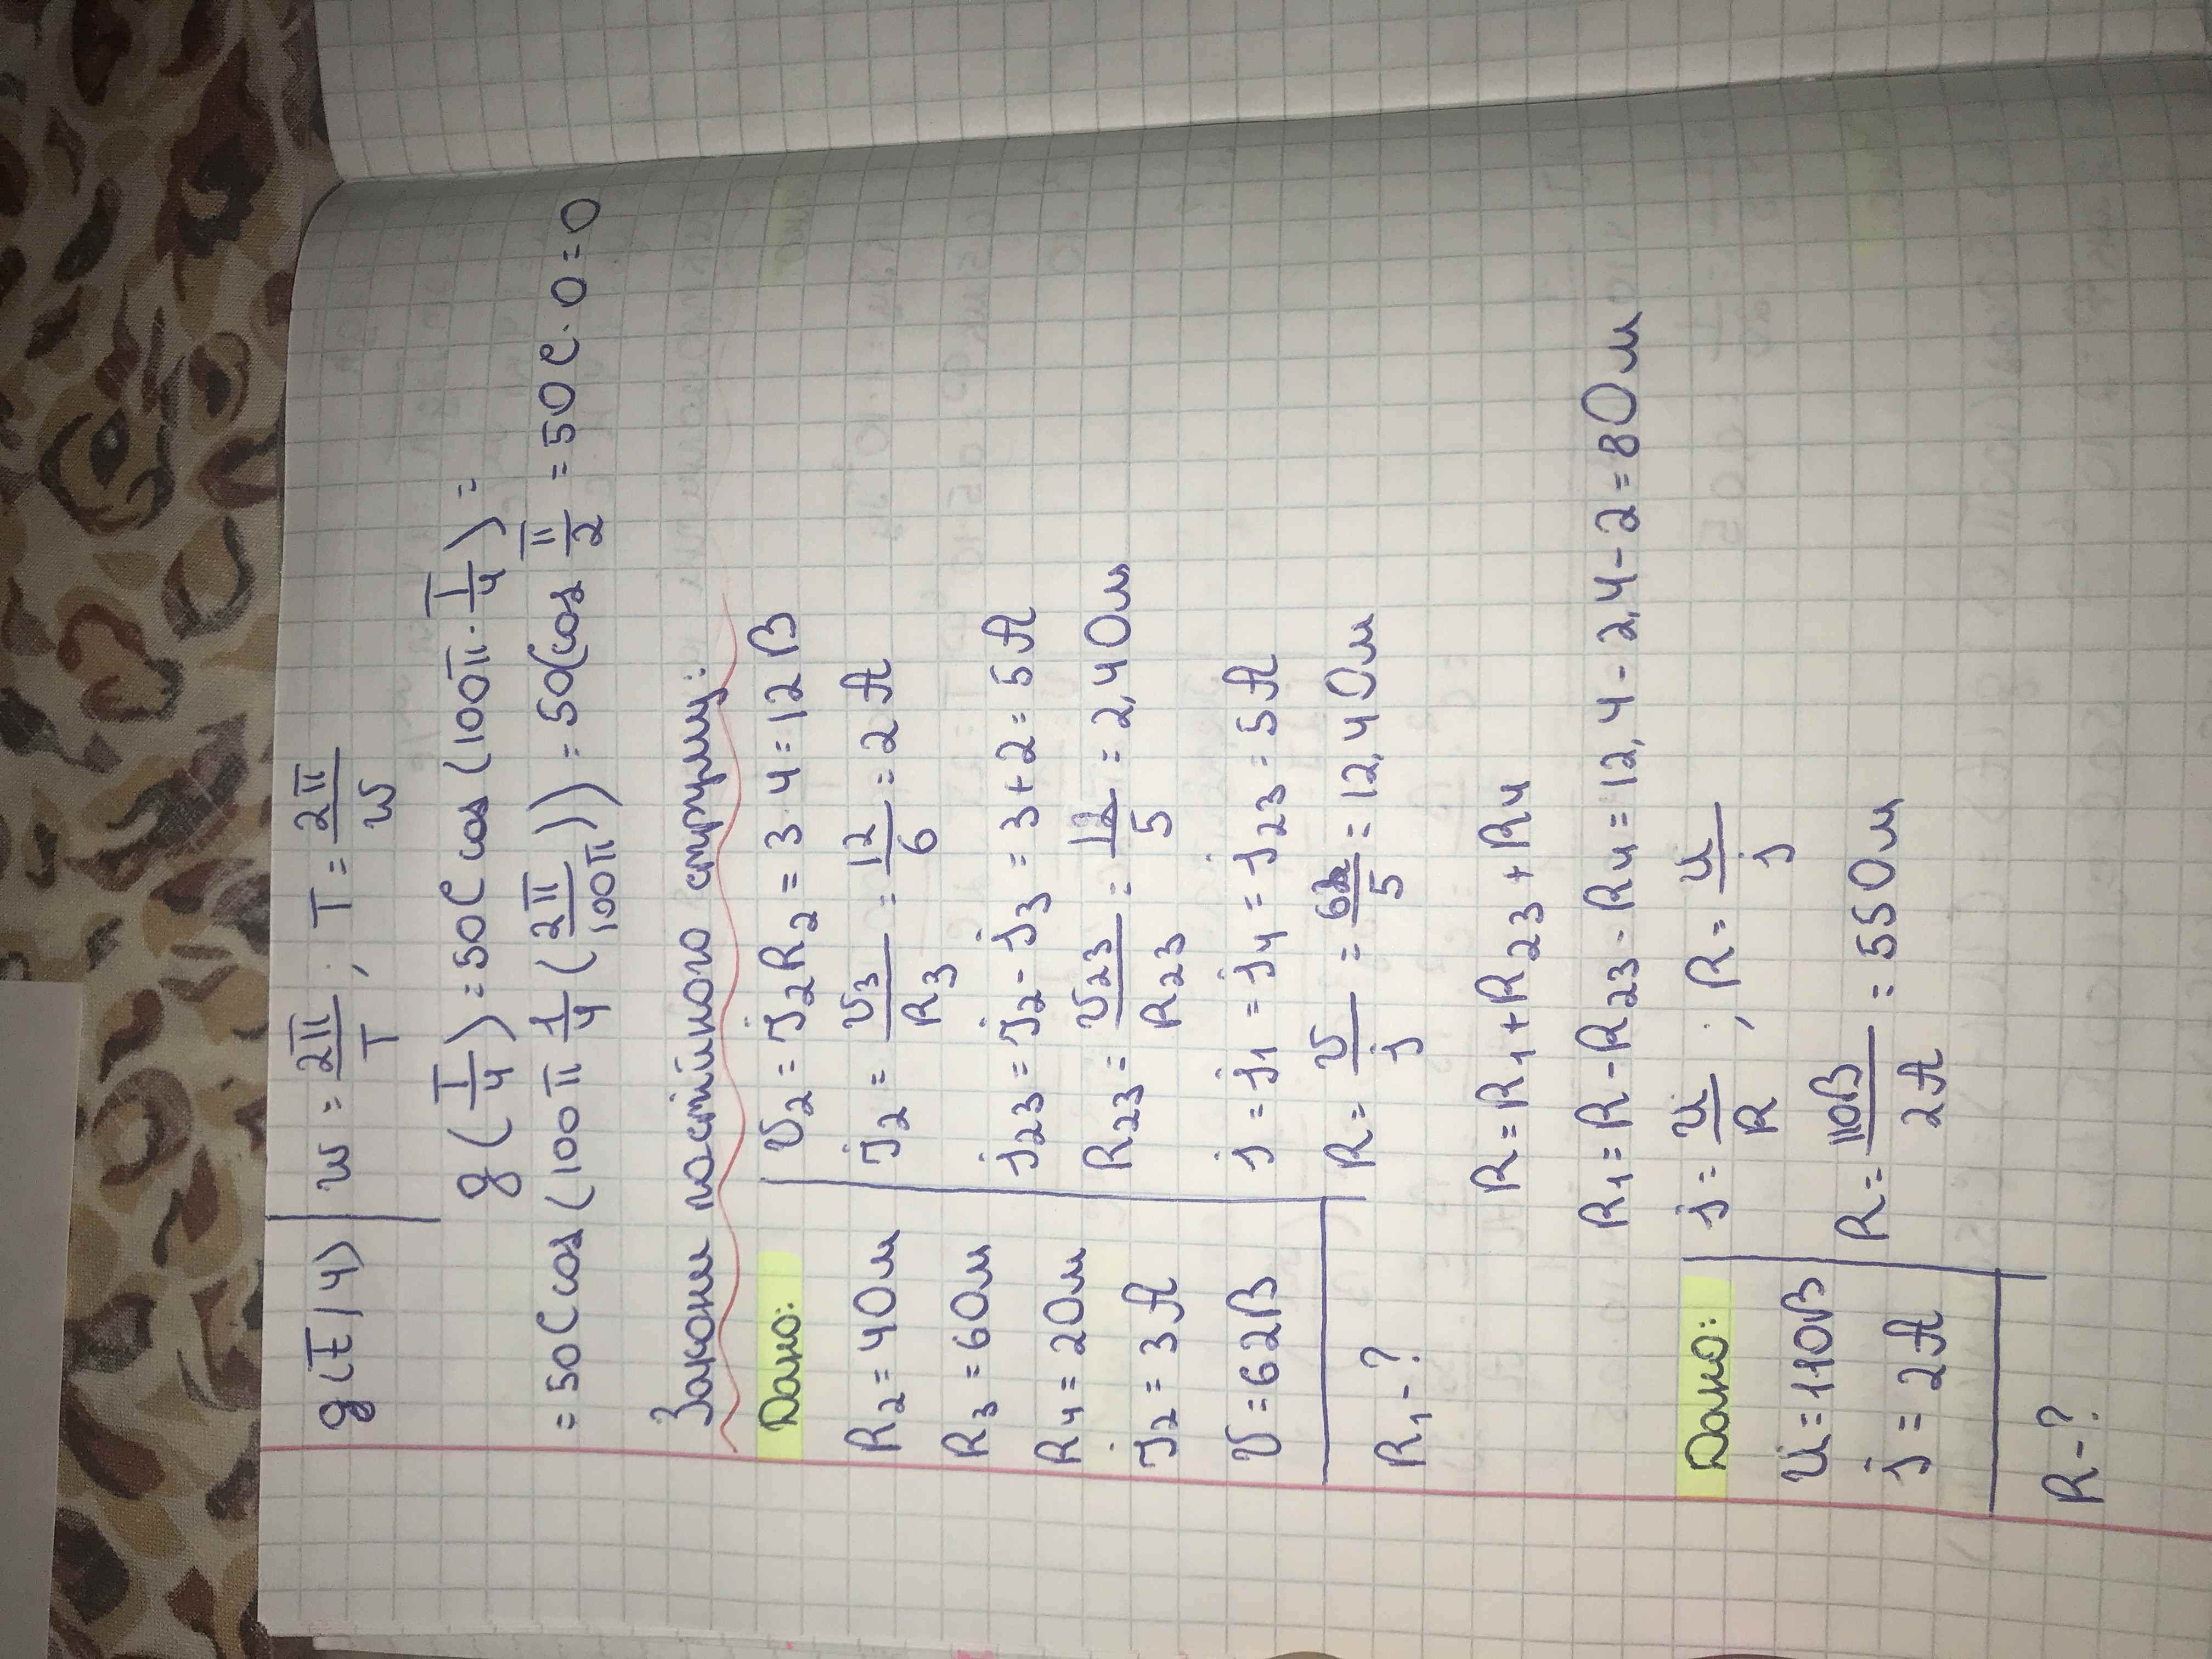 g(T/4) | w = 2π/T ; T = 2π/w
g(T/4) = 50C cos (100π · T/4) =
= 50C cos (100π 1/4 (2π/100π)) = 50C cos π/2 = 50C · 0 = 0
Закони постійного струму:
Дано:
R2 = 4Ом
R3 = 6Ом
R4 = 2Ом
j2 = 3А
U = 62В
R1 - ?
U2 = j2R2 = 3·4 = 12В
j2 = U3/R3 = 12/6 = 2А
j23 = j2 - j3 = 3+2 = 5А
R23 = U23/R23 = 12/5 = 2,4Ом
j = j1 = j4 = j23 = 5А
R = U/j = 62/5 = 12,4Ом
R = R1 + R23 + R4
R1 = R - R23 - R4 = 12,4 - 2,4 - 2 = 8Ом
Дано:
U = 110В
j = 2А
R - ?
j = U/R ; R = U/j
R = 110В/2А = 55Ом